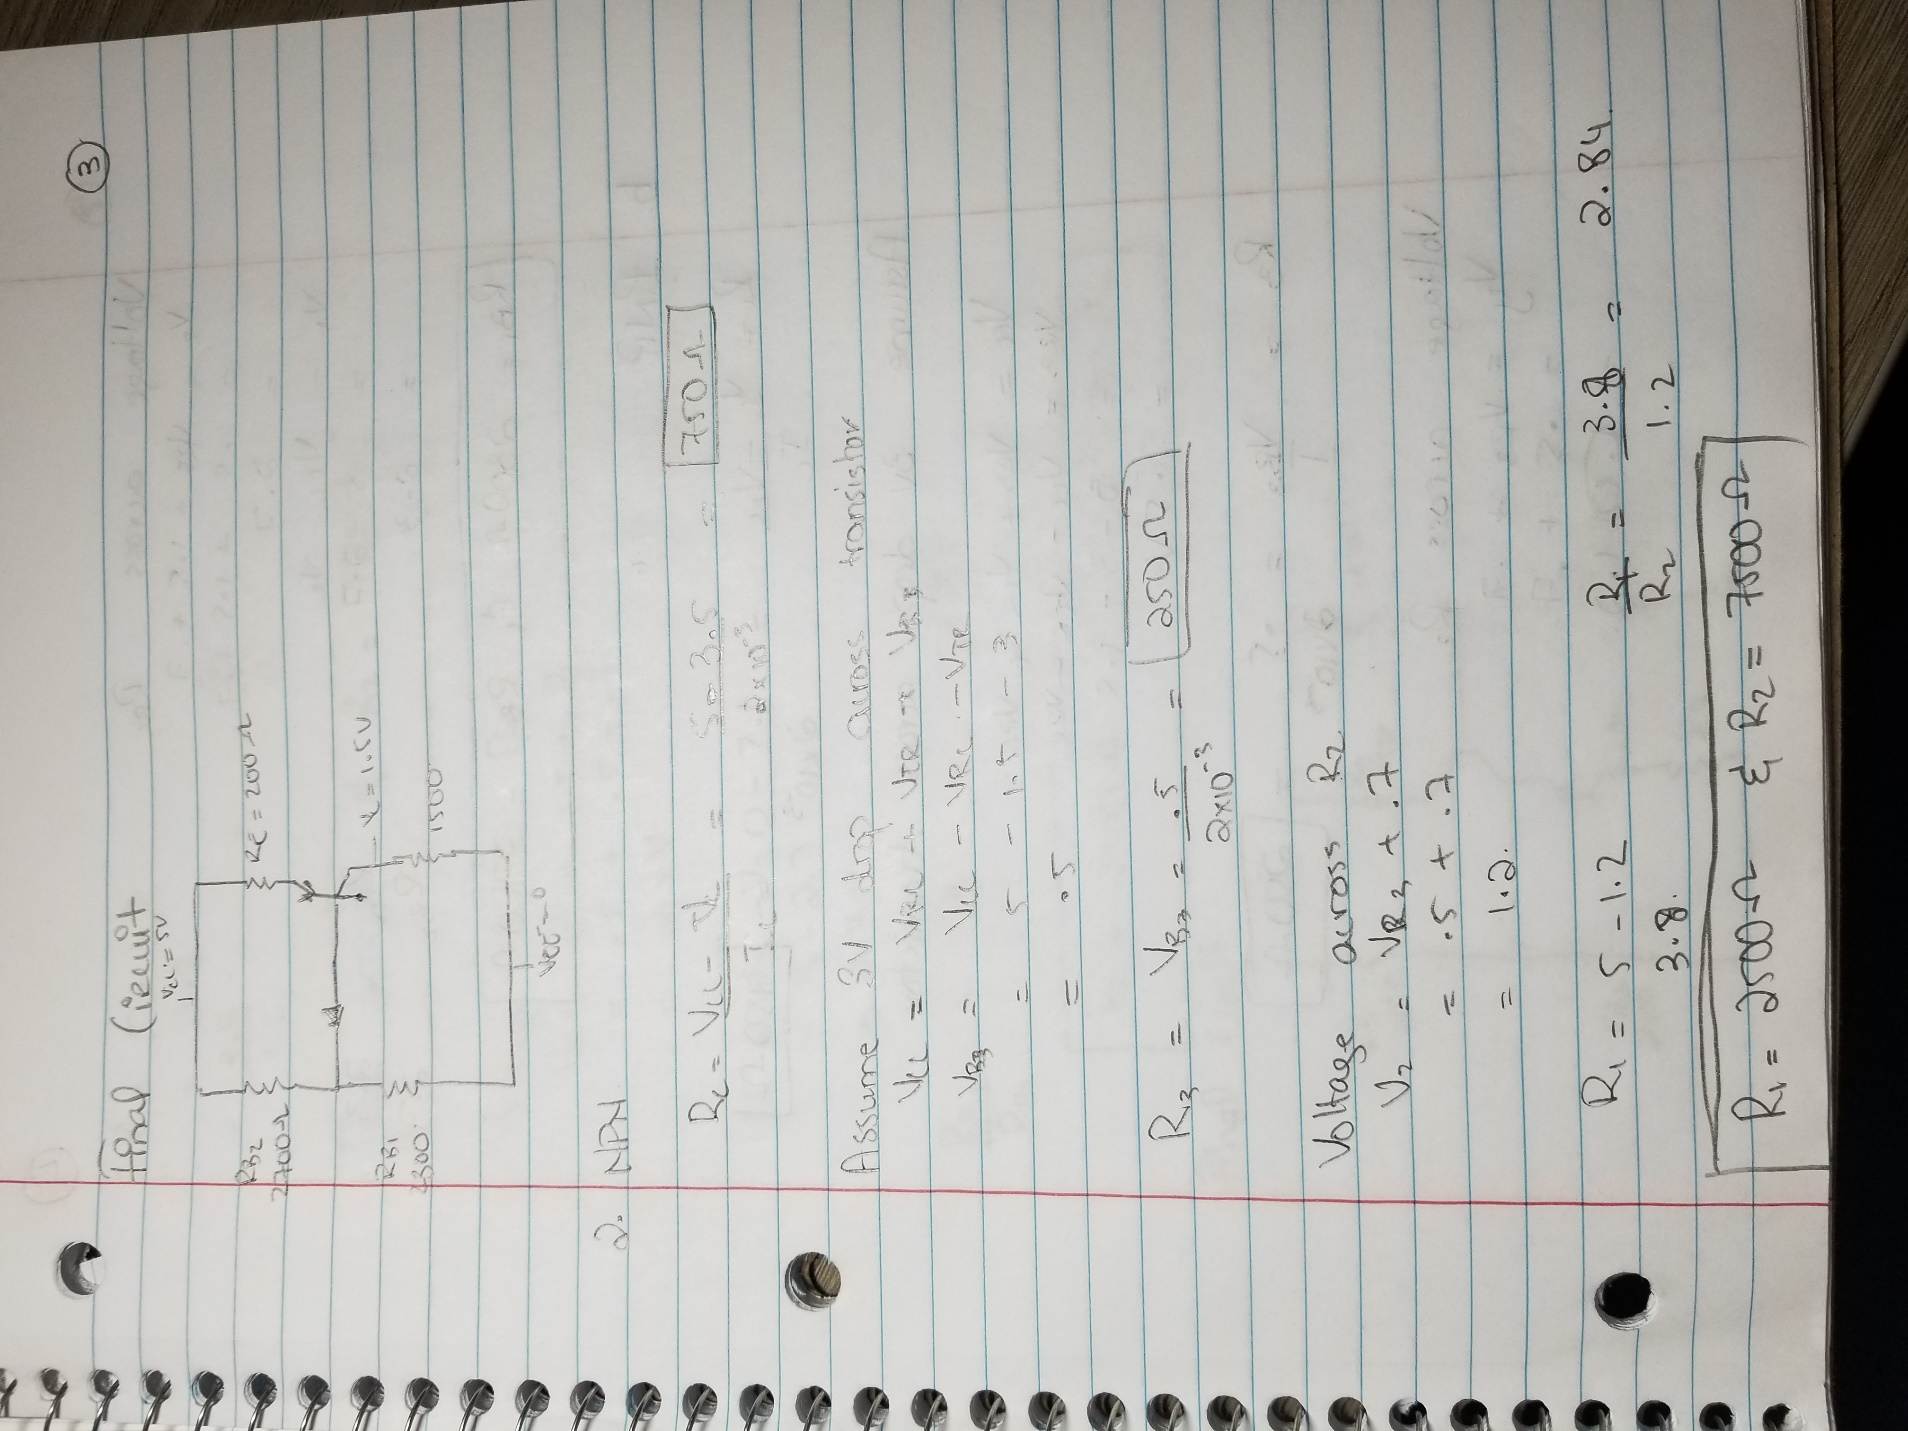 3
Final Circuit
Vcc = 5V
RB2
2700Ω
RE = 200Ω
Vc = 1.5V
RB1
2300
1500
VEE = 0
2. NPN
Rc = Vcc - Vc / Ic = 5 - 3.5 / 2x10⁻³ = 750Ω
Assume 3V drop across transistor
Vcc = VRc + VTR + VR3
VR3 = Vcc - VRc - VTR
= 5 - 1.5 - 3
= .5
R3 = VR3 / = .5 / 2x10⁻³ = 250Ω
Voltage across R2
V2 = VR3 + .7
= .5 + .7
= 1.2
R1 = 5 - 1.2
3.8
R1 / R2 = 3.8 / 1.2 = 2.84
R1 = 2500Ω & R2 = 7500Ω